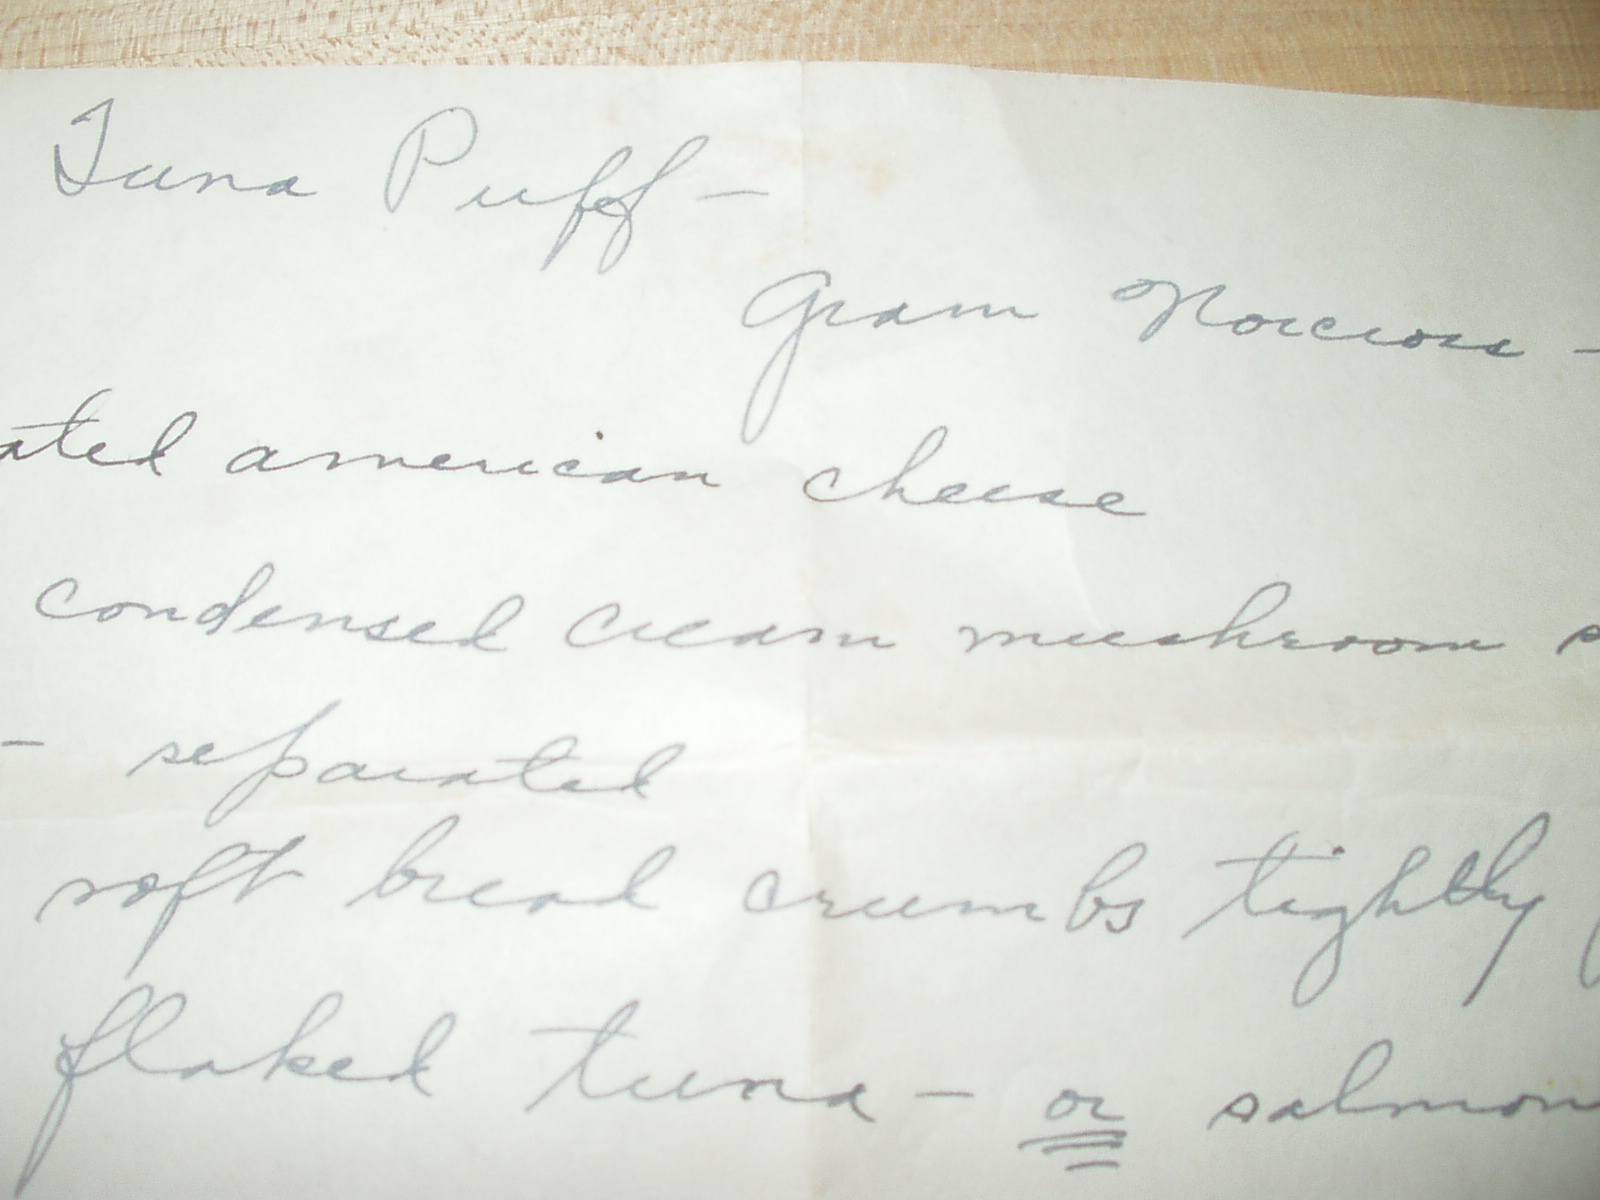 Tuna Puff —
Gram Norcross —
ated american cheese
condensed cream mushroom s
— separated
soft bread crumbs tightly
flaked tuna — or salmon